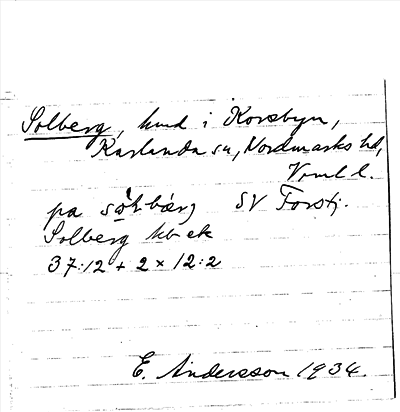 Solberg, hmd i Korsbyn,
Karlanda sn, Nordmarks hd,
Vrml l.
pa sólbærj SV Torsbj.
Solberg hb ek
37:12 + 2 x 12:2
E. Andersson 1934.